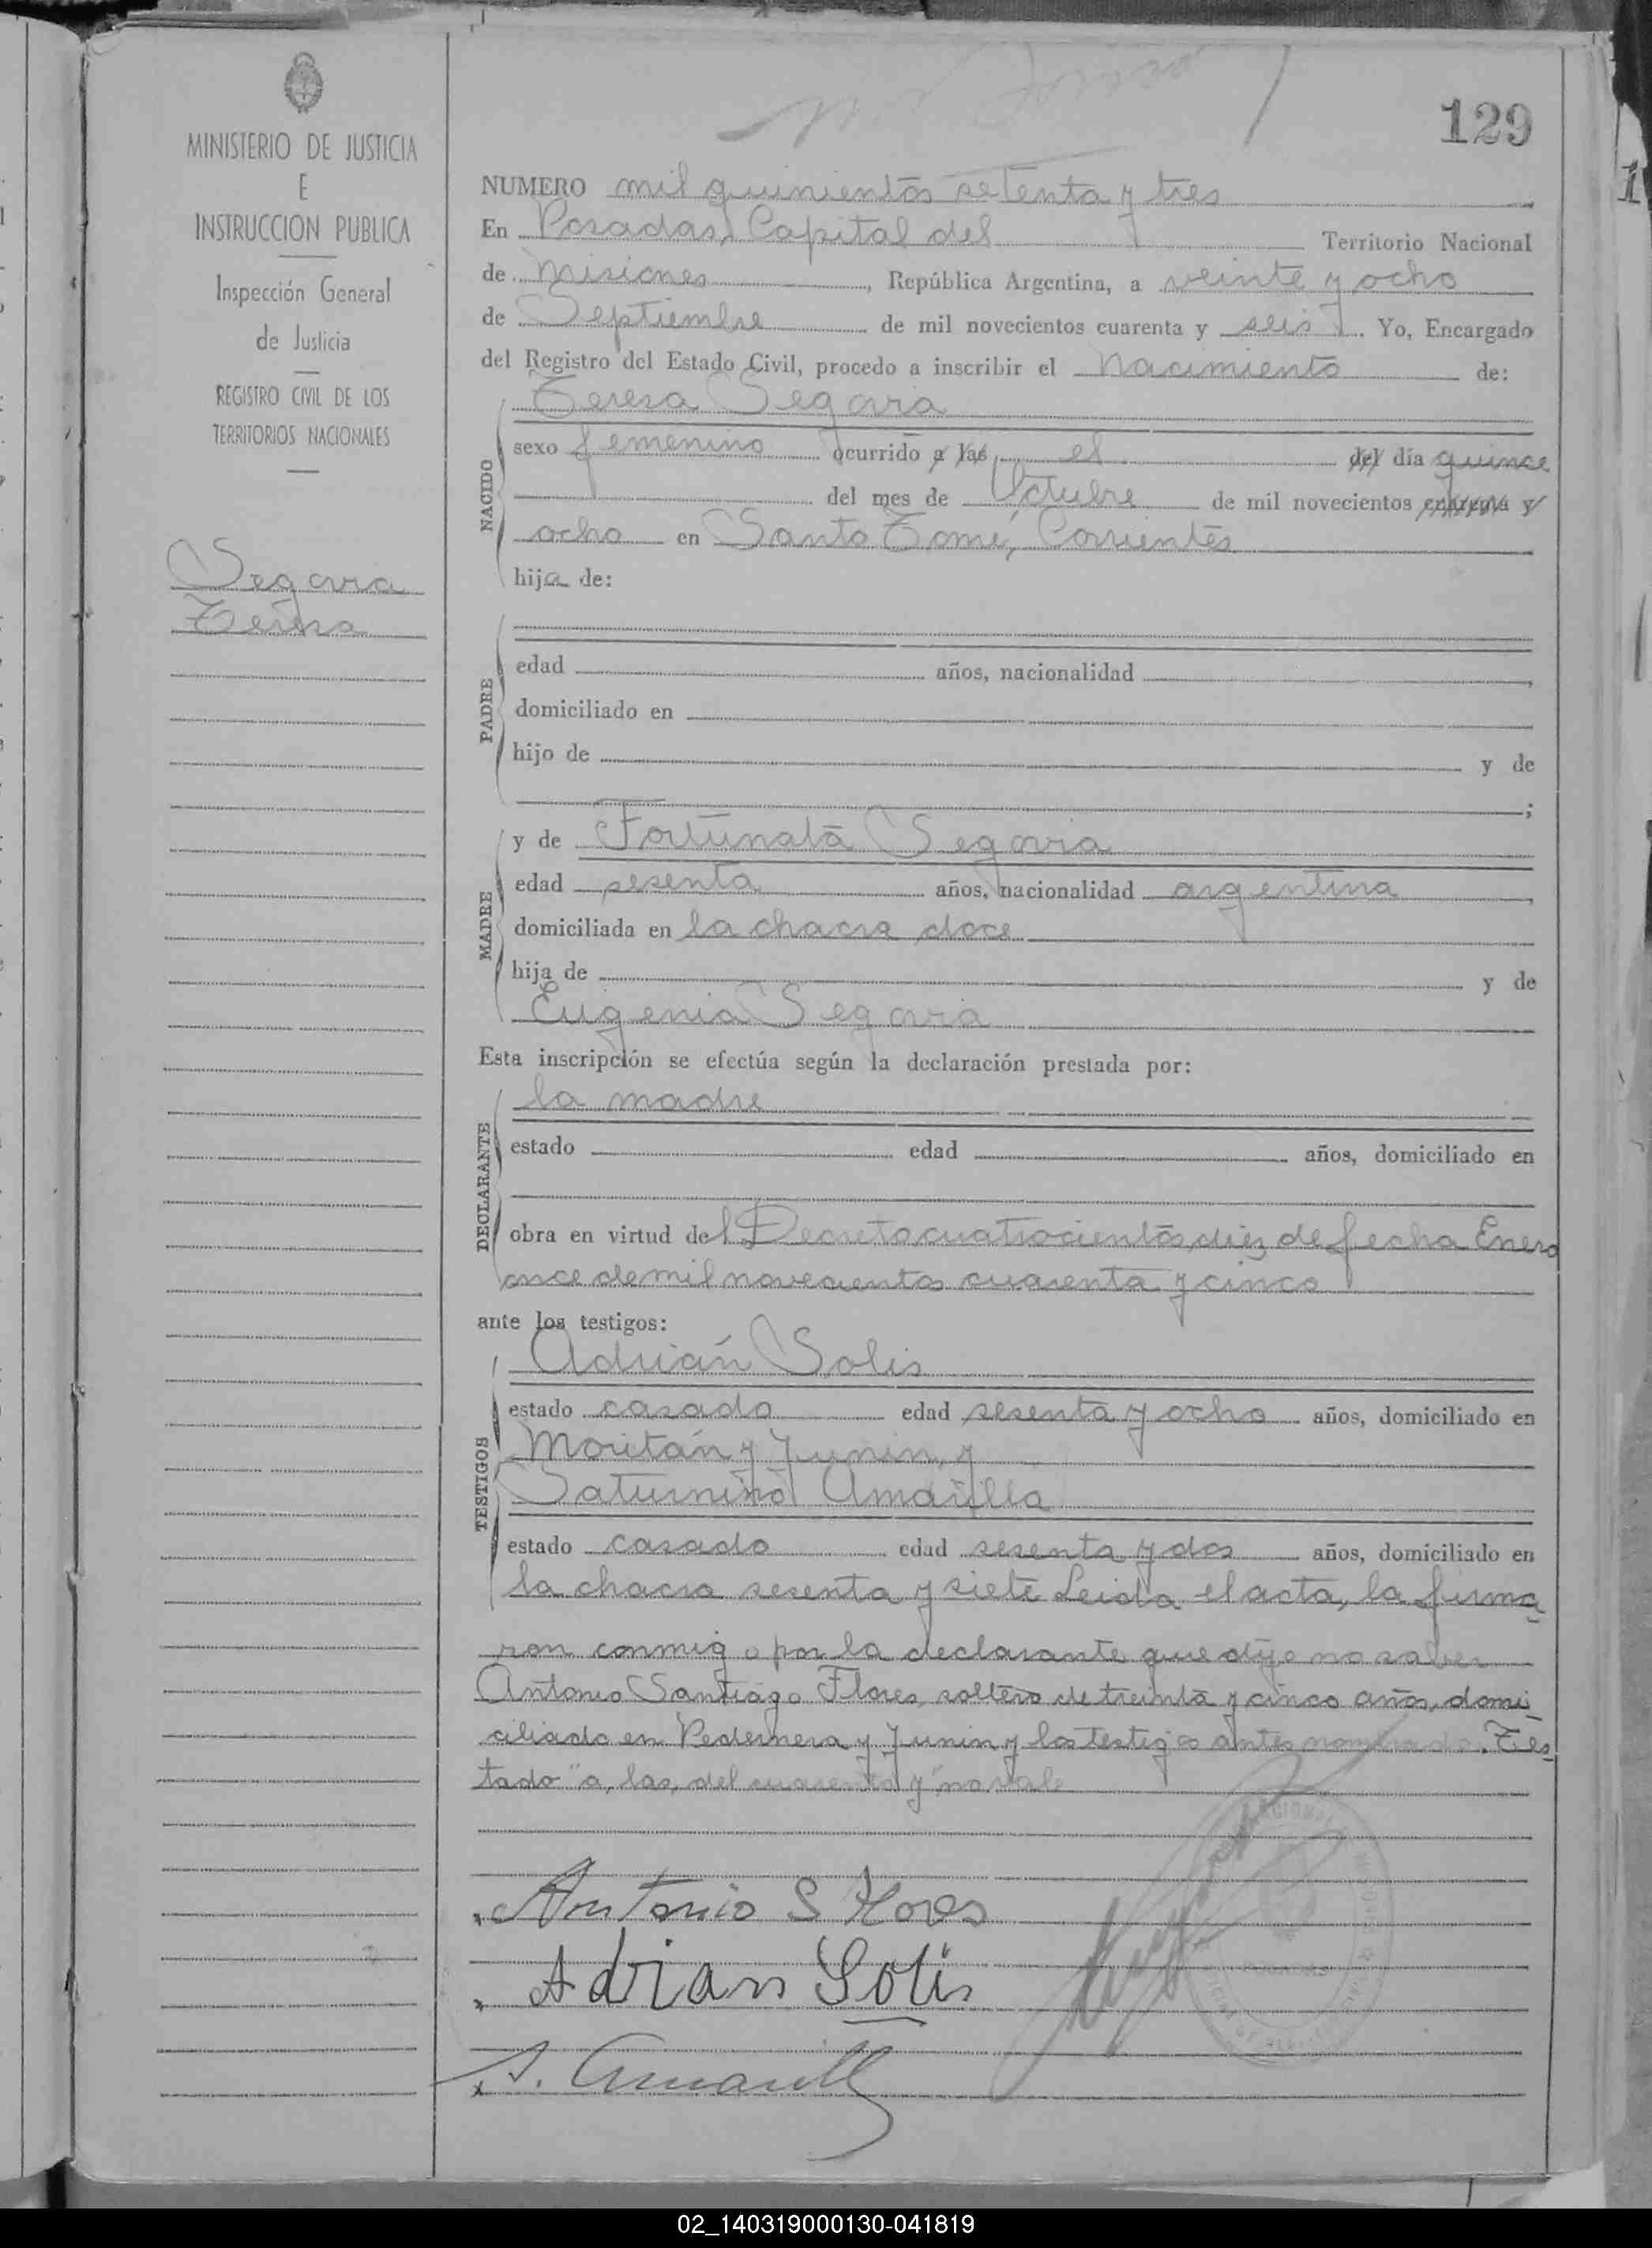 129
MINISTERIO DE JUSTICIA
E
INSTRUCCION PUBLICA
Inspección General
de Justicia
REGISTRO CIVIL DE LOS
TERRITORIOS NACIONALES
Segovia
Teresa
NUMERO mil quinientos setenta y tres
En Posadas, Capital del Territorio Nacional
de Misiones, República Argentina, a veinte y ocho
de Septiembre de mil novecientos cuarenta y seis. Yo, Encargado
del Registro del Estado Civil, procedo a inscribir el Nacimiento de:
NACIDO
Teresa Segovia
sexo femenino ocurrido a las el del día quince
del mes de Octubre de mil novecientos cuarenta y
ocho en Santo Tomé, Corrientes
hija de:
PADRE
edad años, nacionalidad
domiciliado en
hijo de y de
;
MADRE
y de Fortunata Segovia
edad sesenta años, nacionalidad argentina
domiciliada en la chacra doce
hija de y de
Eugenia Segovia
Esta inscripción se efectúa según la declaración prestada por:
DECLARANTE
la madre
estado edad años, domiciliado en
obra en virtud del Decreto cuatrocientos diez de fecha Enero
once de mil novecientos cuarenta y cinco
ante los testigos:
TESTIGOS
Adrián Solis
estado casado edad sesenta y ocho años, domiciliado en
Moritán y Junin, y
Saturnino Amarilla
estado casado edad sesenta y dos años, domiciliado en
la chacra sesenta y siete Leida el acta, la firma
ron conmigo por la declarante que dijo no saber
Antonio Santiago Flores, soltero de treinta y cinco años, domi
ciliado en Pedernera y Junin y los testigos antes nombrado. Tes
tado "a, las, del cuarenta y" no vale
Antonio S Flores
Adrian Solis
S. Amarilla
02_140319000130-041819